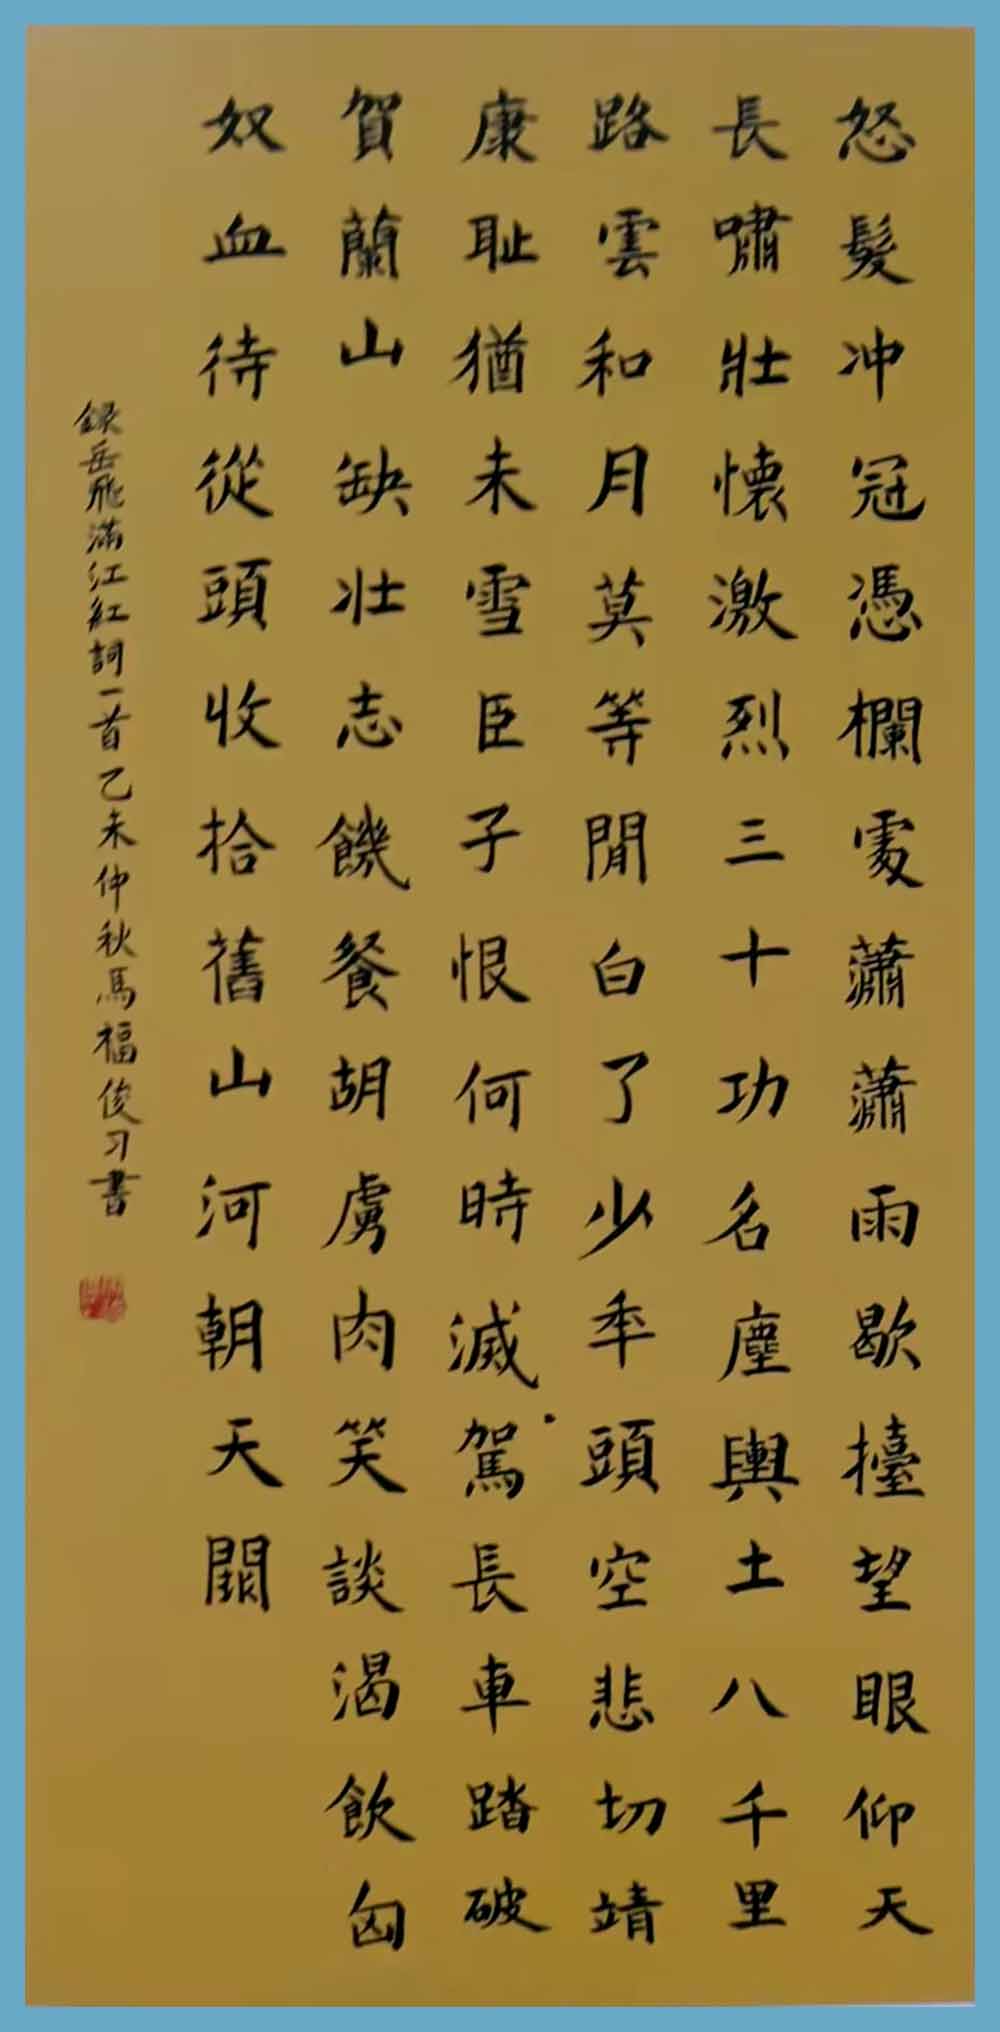 怒髮冲冠憑欄處蕭蕭雨歇擡望眼仰天
長嘯壯懷激烈三十功名塵輿土八千里
路雲和月莫等閒白了少年頭空悲切靖
康耻猶未雪臣子恨何時滅駕長車踏破
賀蘭山缺壮志饑餐胡虜肉笑談渴飲匈
奴血待從頭收拾舊山河朝天闕
録岳飛滿江紅詞一首乙未仲秋馬福俊习書